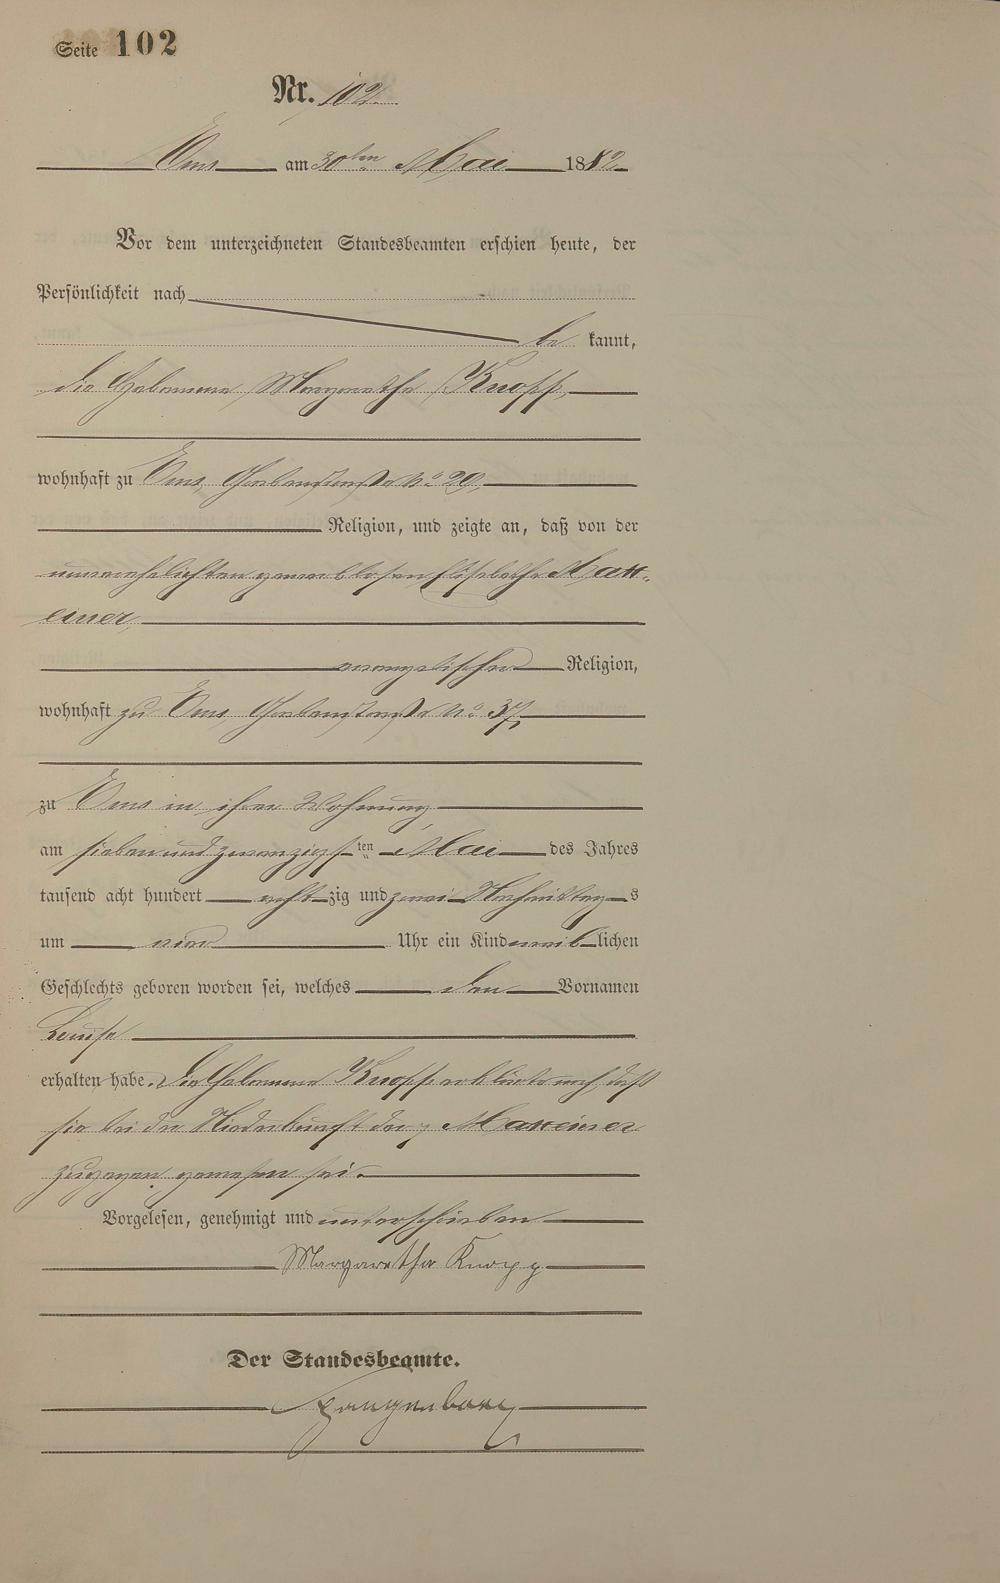 Seite 102
Nr. 102.
Ems am 30ten Mai 1882
Vor dem unterzeichneten Standesbeamten erschien heute, der
Persönlichkeit nach
be kannt,
die Hebamme Margaretha Knopp,
wohnhaft zu Ems, Grabenstraße No 29,
Religion, und zeigte an, daß von der
unverehelichten gewerblosen Elisabetha Matt-
einer,
evangelischer Religion,
wohnhaft zu Ems Grabenstraße No 37,
zu Ems in ihrer Wohnung,
am sieben und zwanzigsten Mai des Jahres
tausend acht hundert acht zig und zwei Nachmittags
um vier Uhr ein Kind weiblichen
Geschlechts geboren worden sei, welches den Vornamen
Luise
erhalten habe. Die Hebamme Knopp erklärte noch, daß
sie bei der Niederkunft der Matteiner
zugegen gewesen sei.
Vorgelesen, genehmigt und unterschrieben
Margaretha Knopp
Der Standesbeamte.